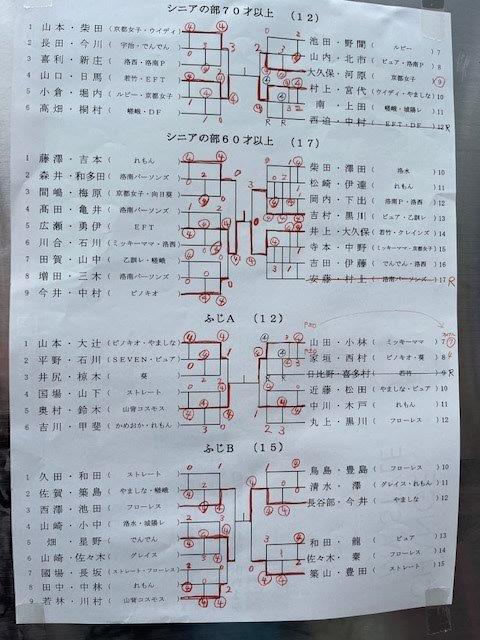 シニアの部70才以上 （12）
1 山本・柴田（京都女子・ウイディ）
2 長田・今川（宇治・でんでん）
3 喜利・新庄（洛西・洛南P）
4 山口・日馬（若竹・EFT）
5 小倉・堀内（ルビー・京都女子）
6 高畑・桐村（嵯峨・DF）
池田・野間（ルビー）7
山内・北市（ピュア・洛南P）8
大久保・河原（京都女子）9
村上・宮代（ウイディ・やましな）10
南・上田（嵯峨・城陽レ）11
西迫・中村（EFT・DF）12 R
シニアの部60才以上 （17）
1 藤澤・吉本（れもん）
2 森井・和多田（洛南パーソンズ）
3 間嶋・梅原（京都女子・向日葵）
4 髙田・亀井（洛南パーソンズ）
5 広瀬・勇伊（EFT）
6 川合・石川（ミッキーママ・洛西）
7 田賀・山中（乙訓レ・嵯峨）
8 増田・三木（洛南パーソンズ）
9 今井・中村（ピノキオ）
柴田・澤田（洛水）10
松崎・伊達（れもん）11
岡内・下出（洛南P・洛西）12
吉村・黒川（ピュア・乙訓レ）13
井上・大久保（若竹・クレインズ）14
寺本・中野（ミッキーママ・京都女子）15
吉田・伊藤（でんでん・洛西）16
安藤・村上（洛南パーソンズ）17 R
ふじA （12）
1 山本・大辻（ピノキオ・やましな）
2 平野・石川（SEVEN・ピュア）
3 井尻・椋木（葵）
4 国場・山下（ストレート）
5 奥村・鈴木（山背コスモス）
6 吉川・甲斐（かめおか・れもん）
山田・小林（ミッキーママ）7
家垣・西村（ピノキオ・葵）8
日比野・喜多村（若竹）9 R
近藤・松田（やましな・ピュア）10
中川・木戸（れもん）11
丸上・黒川（フローレス）12
ふじB （15）
1 久田・和田（ストレート）
2 佐賀・築島（やましな・嵯峨）
3 西澤・池田（フローレス）
4 山崎・小中（洛水・城陽レ）
5 畑・星野（でんでん）
6 山崎・佐々木（グレイス）
7 國場・長坂（ストレート・フローレス）
8 田中・中林（れもん）
9 若林・川村（山背コスモス）
鳥島・豊島（フローレス）10
清水・澤（グレイス・れもん）11
長谷部・今井（やましな）12
和田・龍（ピュア）13
佐々木・秦（フローレス）14
築山・豊田（ストレート）15